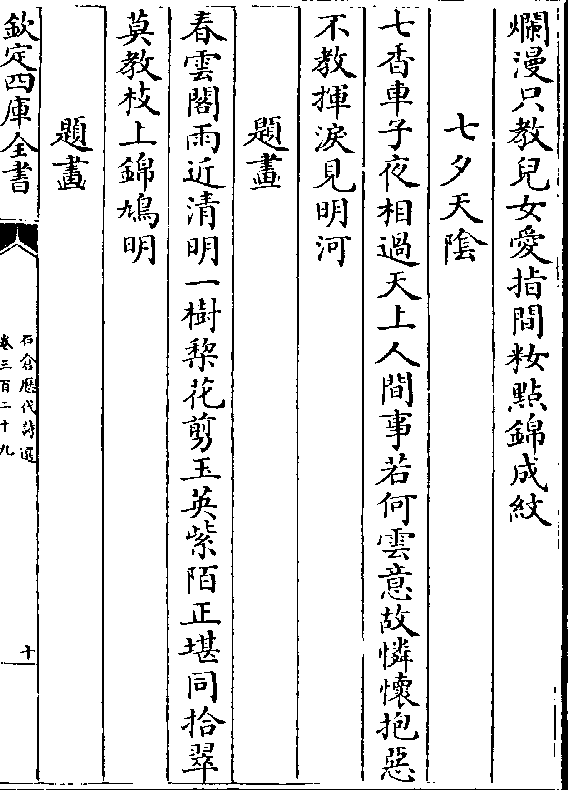 爛漫只教兒女愛指間籹點錦成紋
七夕天隂
七香車子夜相過天上人間事若何雲意故憐懷抱惡
不教揮淚見明河
題畫
春雲閣雨近清明一樹棃花剪玉英紫陌正堪同拾翠
莫教枝上錦鳩明
題畫
欽定四庫全書
石倉歷代詩選
卷三百二十九
十